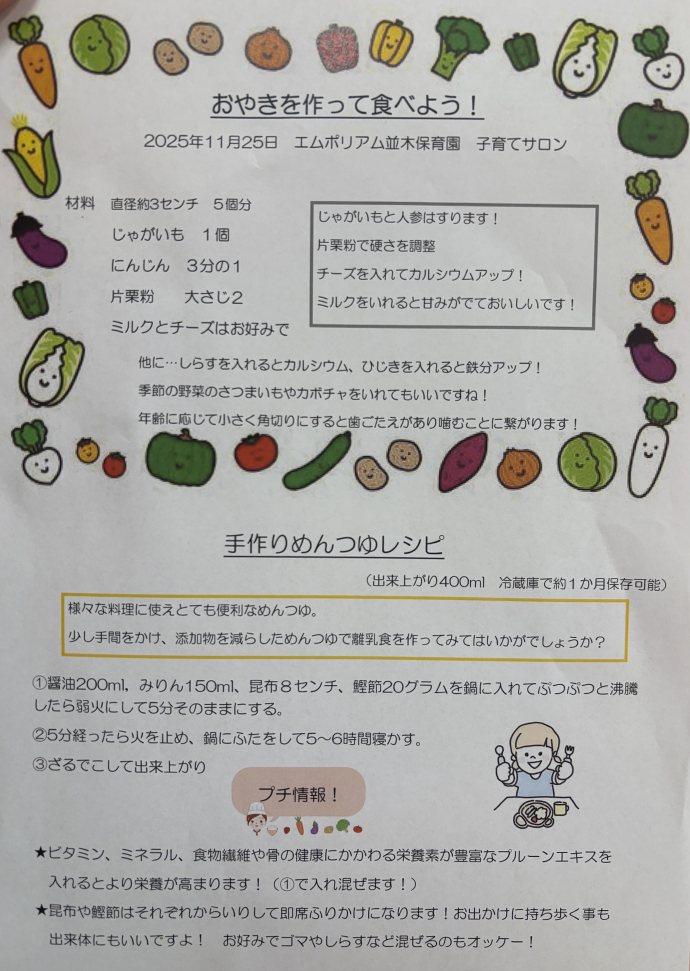 おやきを作って食べよう！
2025年11月25日　エムポリアム並木保育園　子育てサロン
材料　直径約3センチ　5個分
じゃがいも　1個
にんじん　3分の1
片栗粉　　大さじ2
ミルクとチーズはお好みで
じゃがいもと人参はすります！
片栗粉で硬さを調整
チーズを入れてカルシウムアップ！
ミルクをいれると甘みがでておいしいです！
他に…しらすを入れるとカルシウム、ひじきを入れると鉄分アップ！
季節の野菜のさつまいもやカボチャをいれてもいいですね！
年齢に応じて小さく角切りにすると歯ごたえがあり噛むことに繋がります！
手作りめんつゆレシピ
（出来上がり400ml　冷蔵庫で約１か月保存可能）
様々な料理に使えとても便利なめんつゆ。
少し手間をかけ、添加物を減らしためんつゆで離乳食を作ってみてはいかがでしょうか？
①醤油200ml，みりん150ml、昆布８センチ、鰹節20グラムを鍋に入れてぷつぷつと沸騰
したら弱火にして5分そのままにする。
②5分経ったら火を止め、鍋にふたをして5～6時間寝かす。
③ざるでこして出来上がり
プチ情報！
★ビタミン、ミネラル、食物繊維や骨の健康にかかわる栄養素が豊富なプルーンエキスを
入れるとより栄養が高まります！（①で入れ混ぜます！）
★昆布や鰹節はそれぞれからいりして即席ふりかけになります！お出かけに持ち歩く事も
出来体にもいいですよ！　お好みでゴマやしらすなど混ぜるのもオッケー！